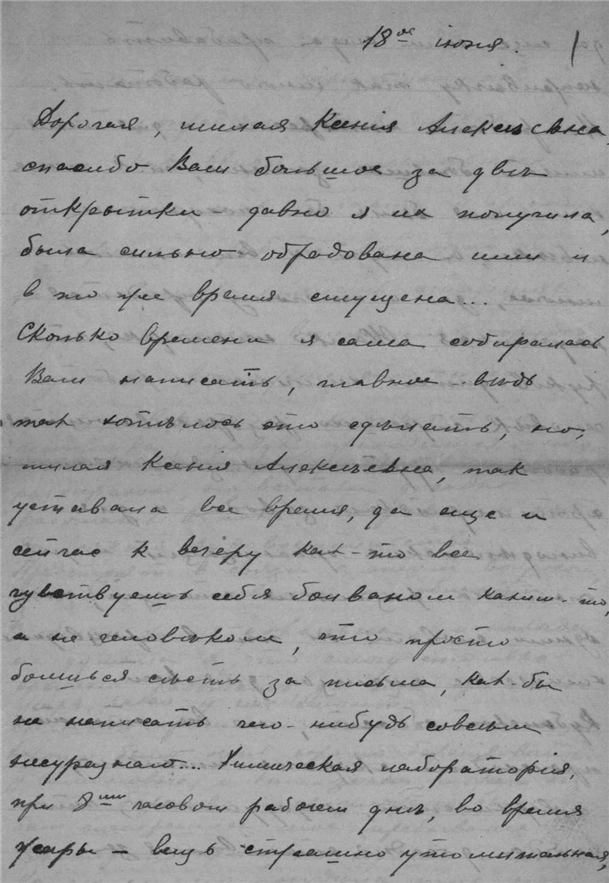 18ое іюня. 1
Дорогая, милая Ксенія Алексѣевна,
спасибо Вам большое за двѣ
открытки – давно я их получила,
была сильно обрадована ими и
в то же время смущена...
Сколько времени я сама собиралась
Вам написать, главное – вѣдь
так хотѣлось это сдѣлать, но,
милая Ксенія Алексѣевна, так
уставала все время, да еще и
сейчас к вечеру как-то все
чувствуешь себя болваном каким-то,
а не человѣком, что просто
боишься сѣсть за письма, как-бы
не написать чего-нибудь совсем
несуразного... Химическая лабораторія,
при 8ми часовом рабочем днѣ, во время
жары – вещь страшно утомительная,